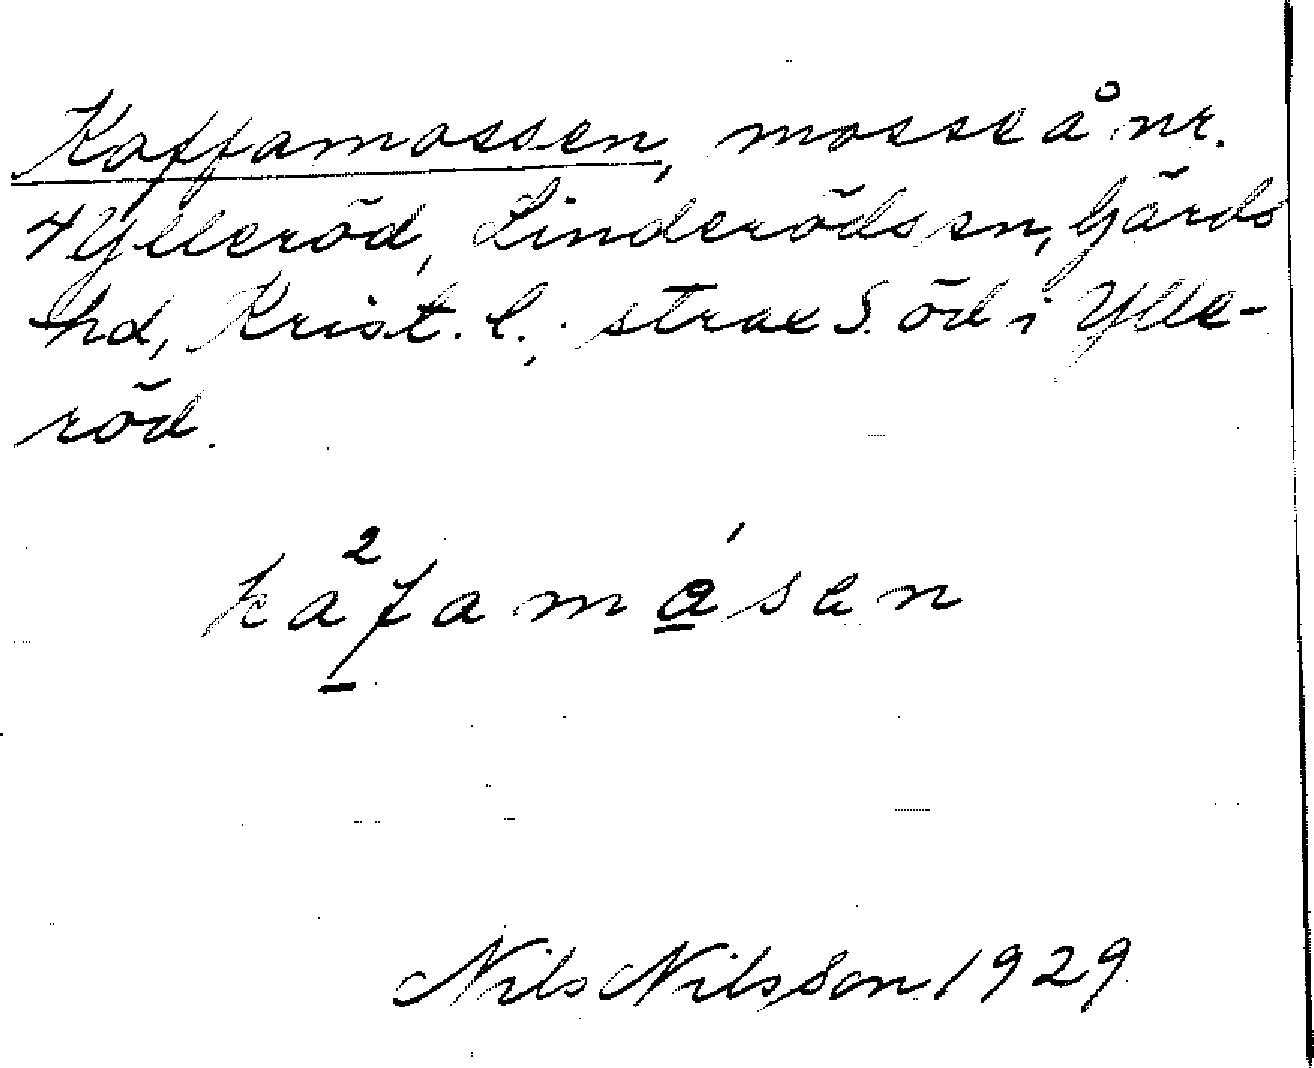 Kaffamossen, mosse å nr.
4 Ylleröd, Linderöds sn, Gärds
hd, Krist. l.; strax S. öd i Ylle-
röd.
ka²famǻsen
Nils Nilsson 1929